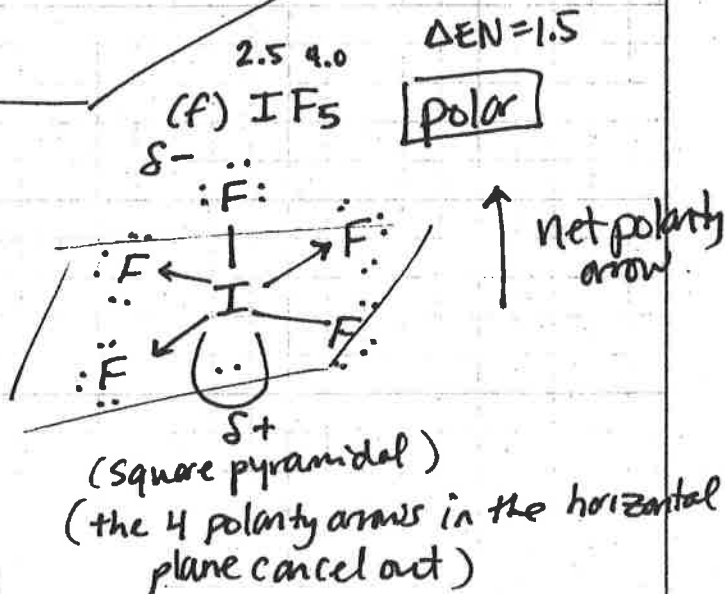 ΔEN=1.5
2.5 4.0
(f) IF5 polar
δ-
:F:
:F F:
I
:F F:
δ+
net polarity
arrow
(square pyramidal)
(the 4 polarity arrows in the horizontal
plane cancel out)